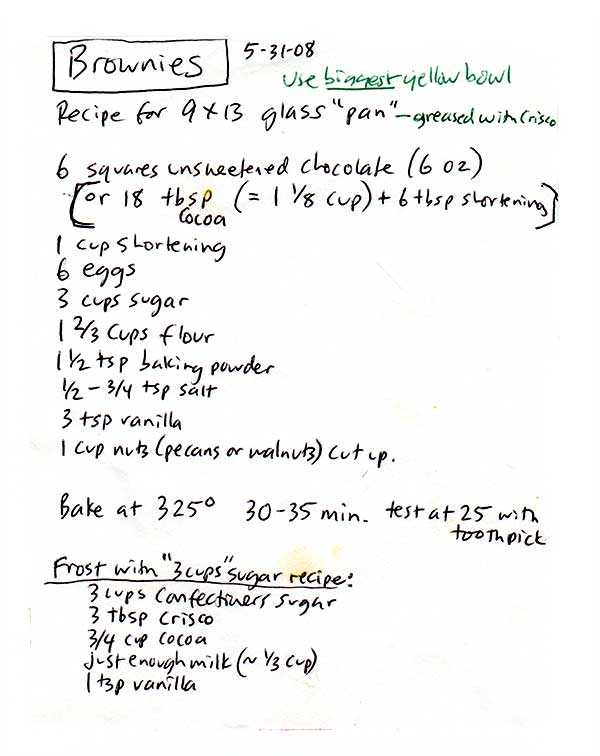 Brownies 5-31-08
use biggest yellow bowl
Recipe for 9x13 glass "pan" - greased with Crisco
6 squares unsweetened chocolate (6 oz)
[or 18 tbsp (= 1 1/8 cup) + 6 tbsp shortening]
cocoa
1 cup shortening
6 eggs
3 cups sugar
1 2/3 cups flour
1 1/2 tsp baking powder
1/2 - 3/4 tsp salt
3 tsp vanilla
1 cup nuts (pecans or walnuts) cut up.
Bake at 325° 30-35 min. test at 25 with
toothpick
Frost with "3 cups" sugar recipe:
3 cups confectioners sugar
3 tbsp crisco
3/4 cup cocoa
just enough milk (~ 1/3 cup)
1 tsp vanilla